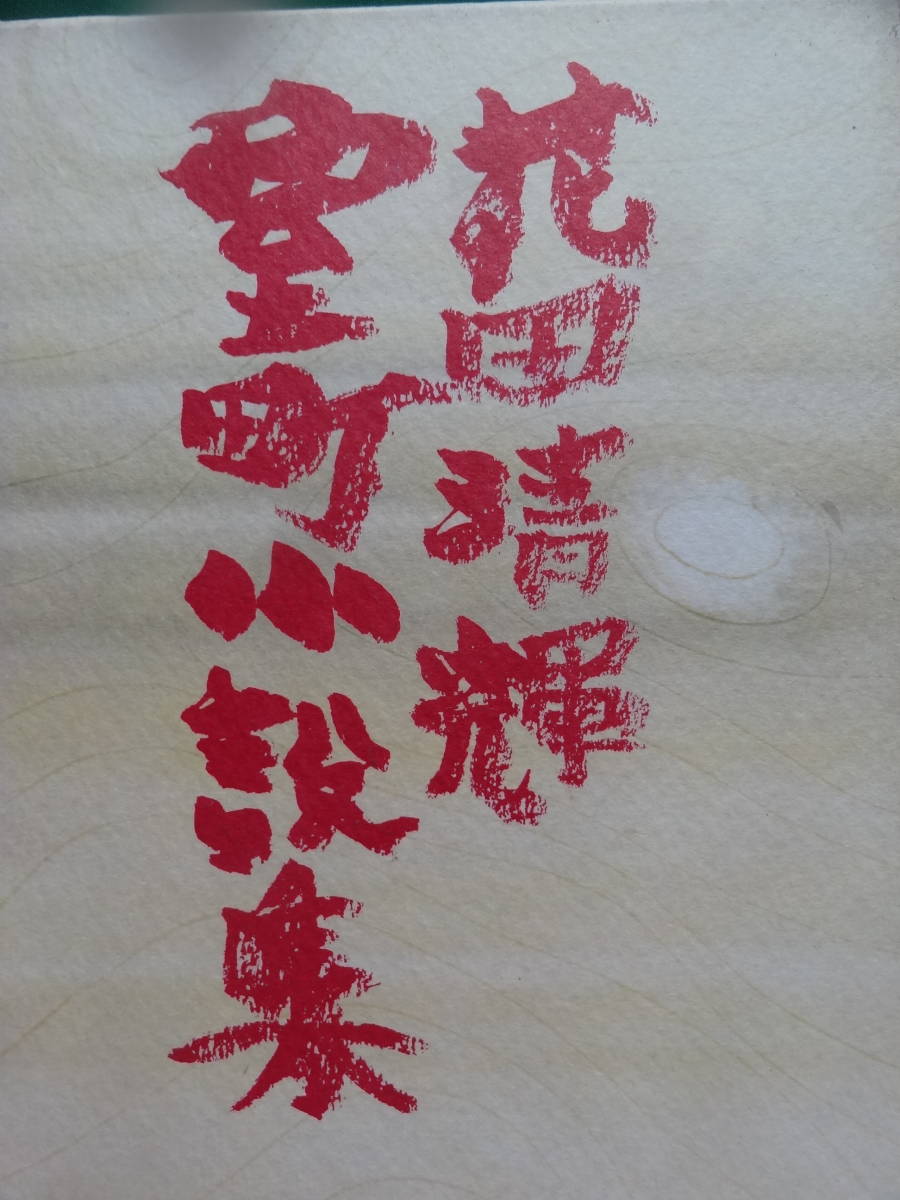 花田清輝
室町小説集